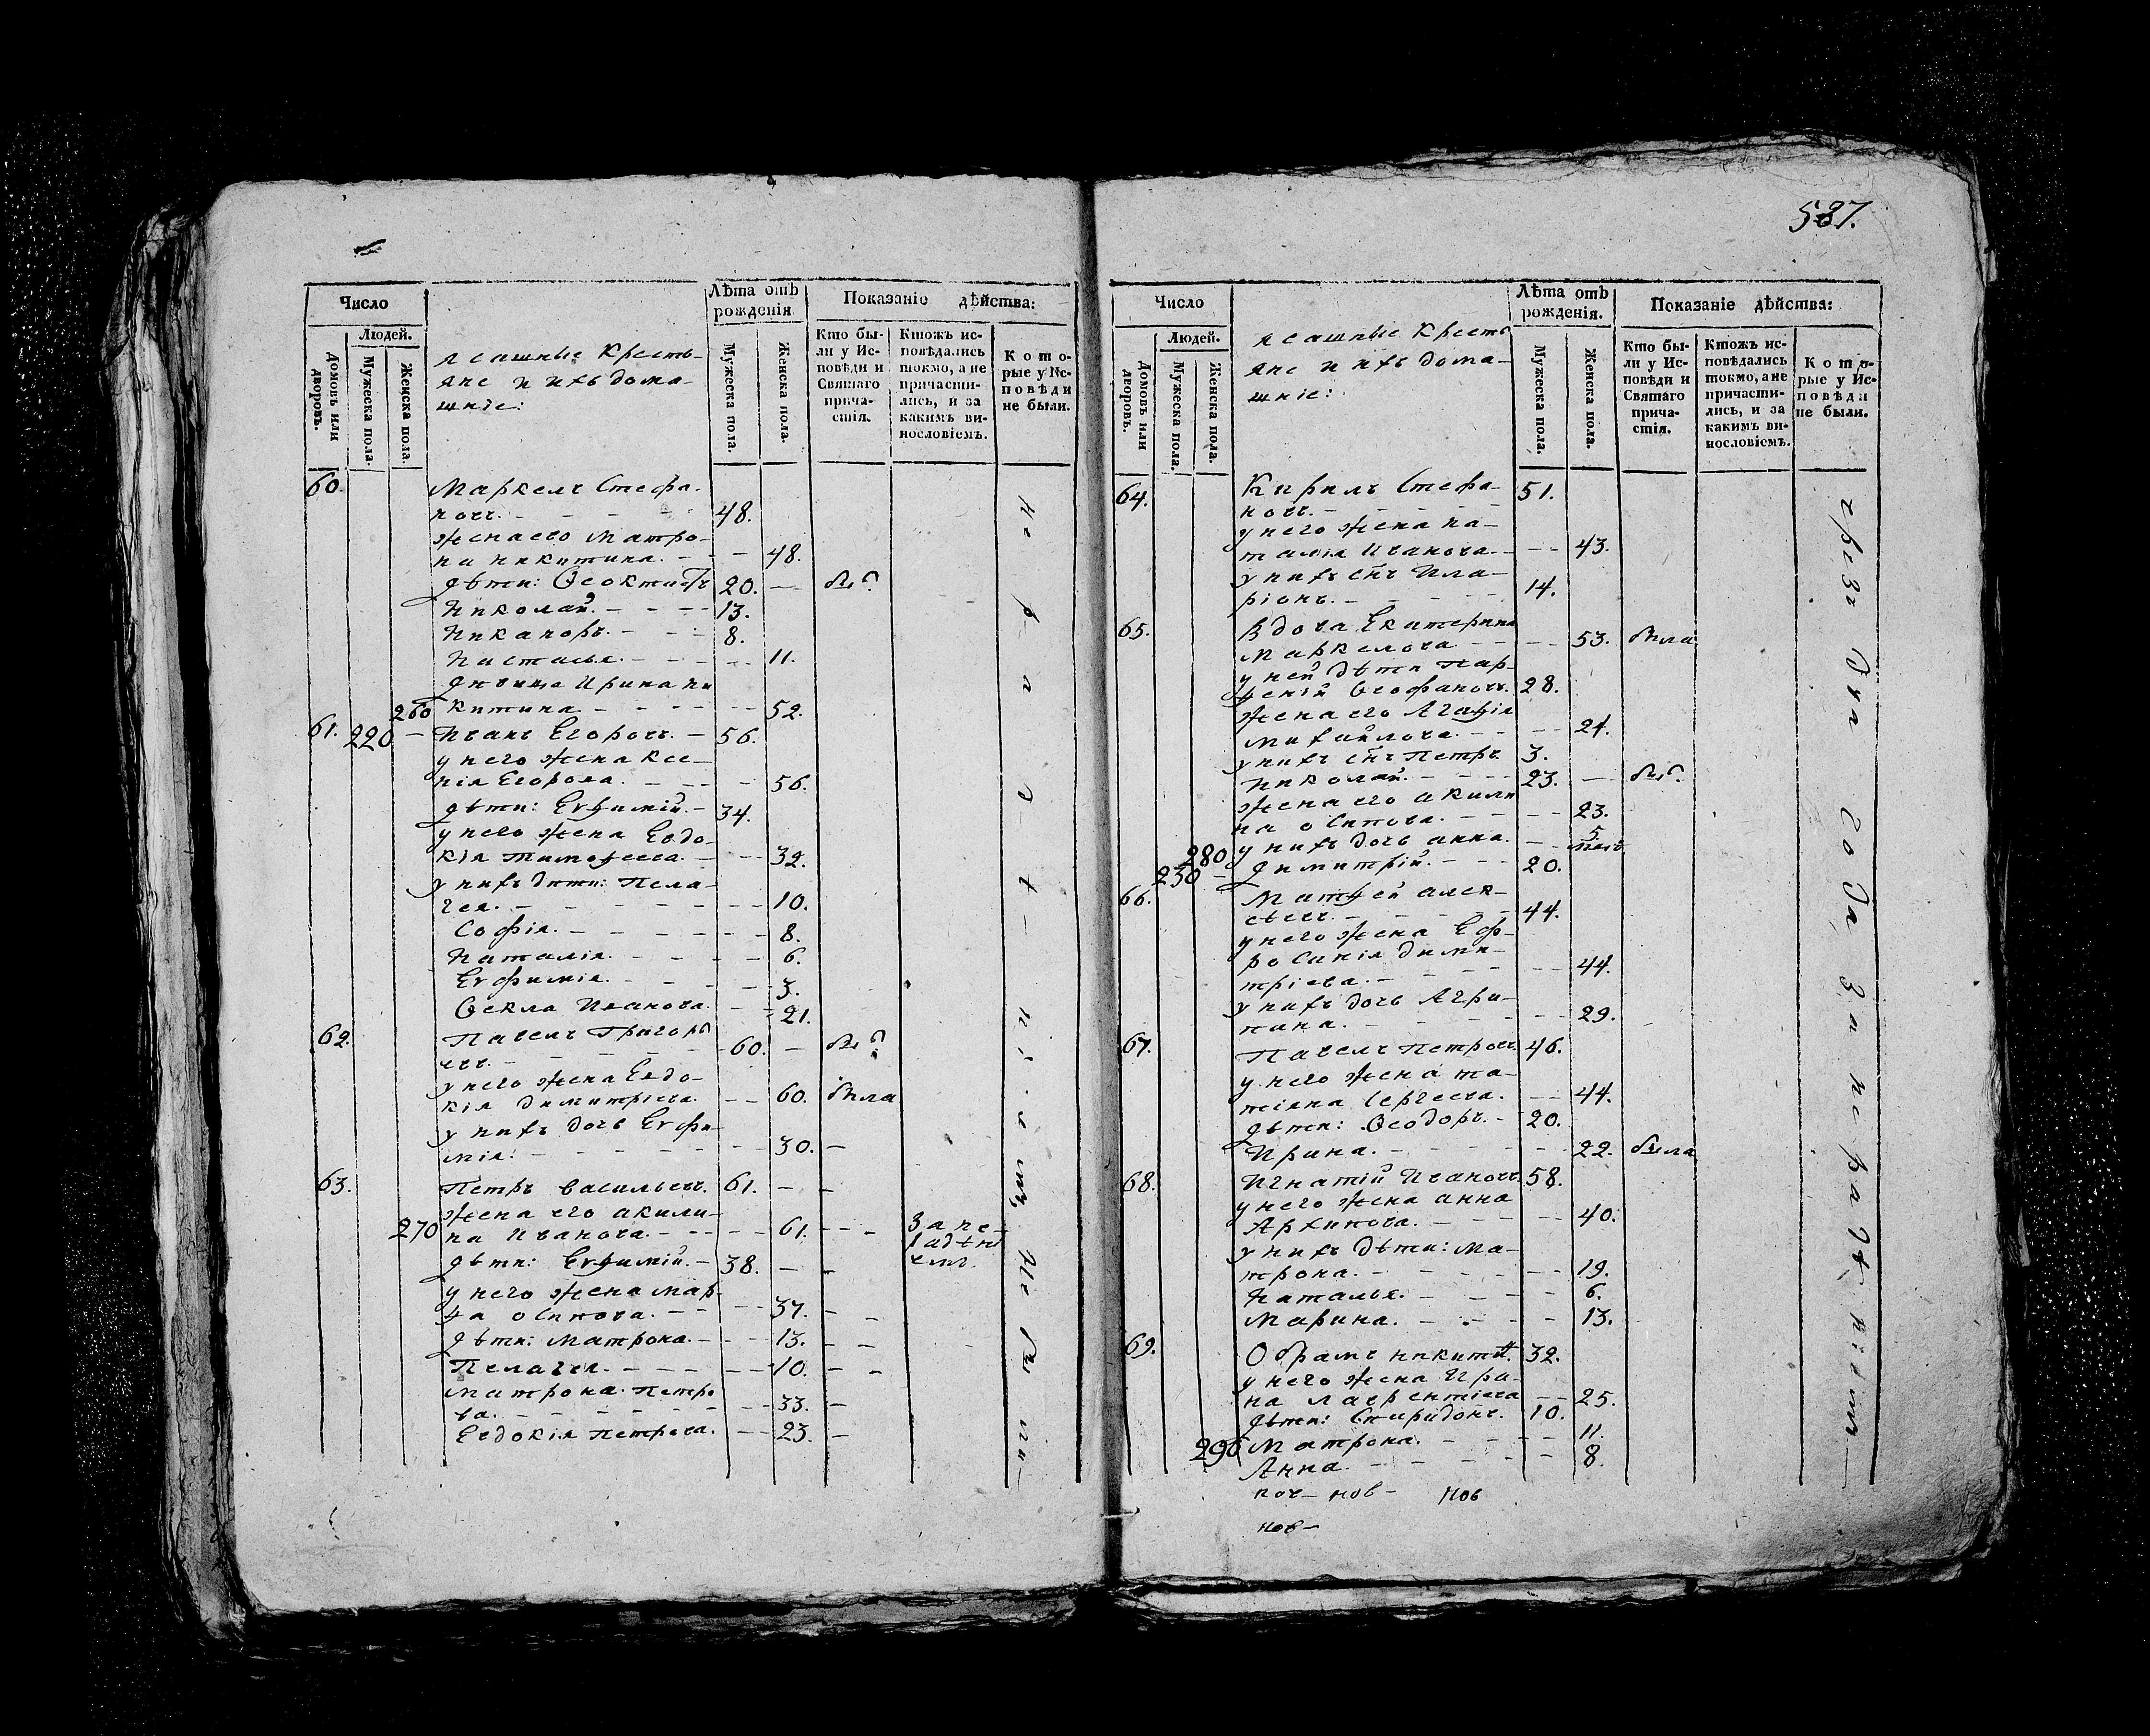 587.
Число
Людей.
Домовъ или дворовъ.
Мужеска пола.
Женска пола.
ясашные Кресть-
яне и ихъ дома-
шніе:
Лѣта отъ
рожденія
Мужеска пола.
Женска пола.
Показаніе дѣйства:
Кто бы-
ли у Ис-
повѣди и
Святаго
прича-
стія.
Ктожъ ис-
повѣдались
токмо, а не
причасти-
лись, и за
какимъ ви-
нословіемъ.
Кото-
рые у Ис-
повѣди
не были.
60. Маркелъ Стефа-
новъ. 48.
жена его Матро-
на Никитина. 48.
дѣти: Ѳеоктистъ 20.
Николай. 13.
Никаноръ. 8.
Настасья. 11.
девица Ирина Ни
260 китина 52.
61. 220 Иванъ Егоровъ. 56.
у него жена Ксе-
нія Егорова. 56.
дѣти: Евѳимій. 34.
у него жена Евдо-
кія Тимоѳеева. 32.
у нихъ дети: Пела-
гея. 10.
Софія. 8.
Наталія. 6.
Евфимія. 3.
Ѳекла Иванова. 21.
62. Павелъ Григорь
евъ. 60.
у него жена Евдо-
кія Димитріева. 60. была
у нихъ дочь Евфи-
мія. 30.
63. Петръ Васильевъ. 61.
жена его Акили-
270 на Иванова. 61.
дѣти: Евѳимій. 38.
у него жена Мар-
ѳа Осипова. 37.
дѣти: Матрона. 13.
Пелагея. 10.
Матрона Петро
ва. 33.
Евдокія Петрова. 23.
Число
Людей.
Домовъ или дворовъ.
Мужеска пола.
Женска пола.
ясашные Кресть
яне и ихъ дома-
шніе:
Лѣта отъ
рожденія.
Мужеска пола.
Женска пола.
Показаніе дѣйства:
Кто бы-
ли у Ис-
повѣди и
Святаго
прича-
стія.
Ктожъ ис-
повѣдались
токмо, а не
причасти-
лись, и за
какимъ ви-
нословіемъ.
Кото-
рые у Ис-
повѣди
не были.
64. Кирилъ Стефа- 51.
новъ.
у него жена На-
талія Иванова. 43.
у нихъ снъ Ила-
ріонъ. 14.
65. Вдова Екатерина
Маркелова 53. была
у ней дѣти Пар-
ѳеній Ѳеофановъ. 28.
жена его Агаѳія
Михайлова. 24.
у нихъ снъ Петръ. 3.
Николай. 23.
жена его Акили
на Осипова. 23.
280 у нихъ дочь Анна. 5
230 Димитрій. 20.
66. Матѳей Алек-
сѣевъ. 44.
у него жена Еф-
росинія Дими-
тріева. 44.
у нихъ дочь Агри-
пина. 29.
67. Павелъ Петровъ. 46.
у него жена Та-
тіяна Сергеева. 44.
дѣти: Ѳеодоръ. 20.
Ирина. 22. была
68. Игнатій Ивановъ. 58.
у него жена Анна
Архипова. 40.
у нихъ дѣти: Ма-
трона. 19.
Наталья. 6.
Марина. 13.
69. Обрамъ Никитин. 32.
у него жена Ири-
на Лаврентіева 25.
дѣти: Спиридонъ. 10.
290 Матрона. 11.
Анна. 8.
нов- нов- нов
нов-